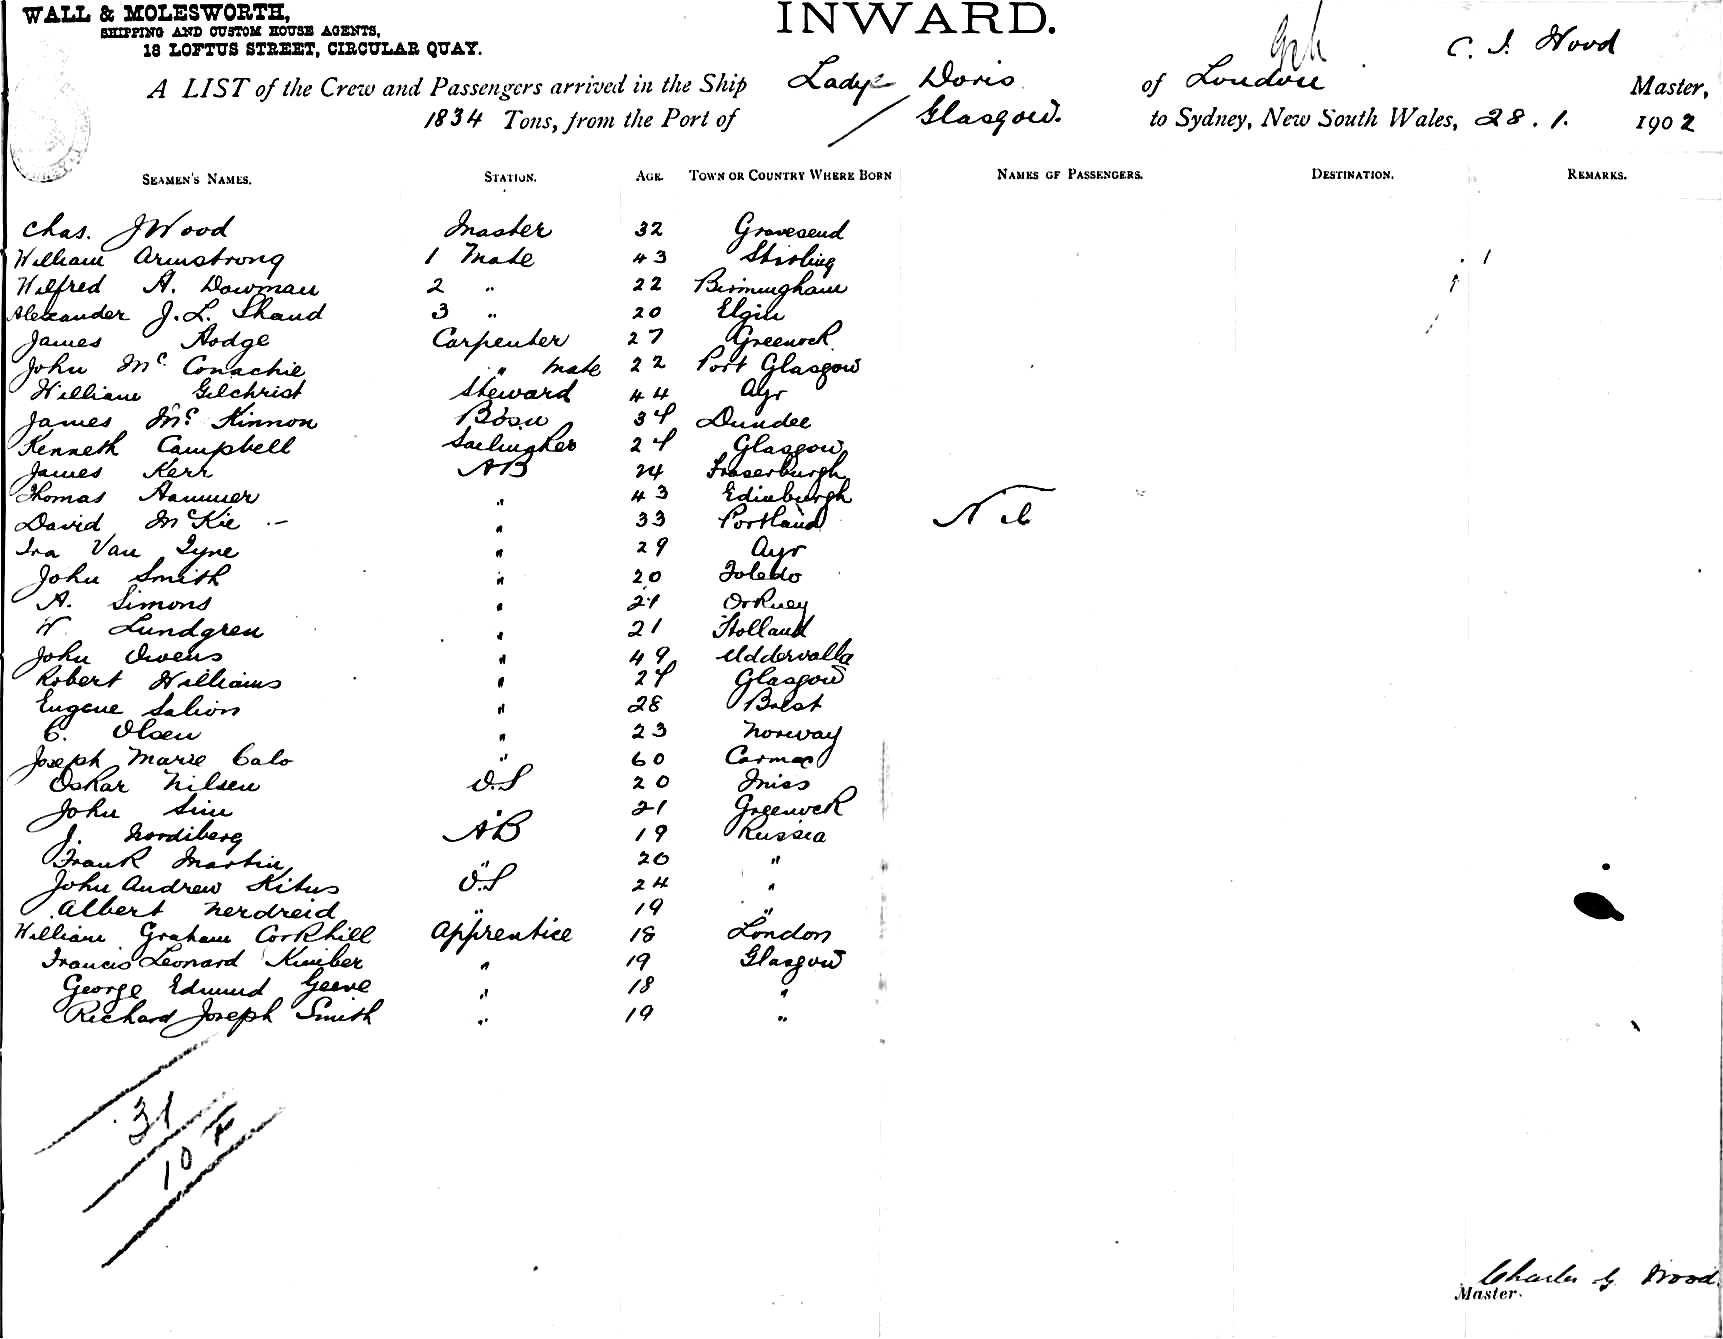 WALL & MOLESWORTH,
SHIPPING AND CUSTOM HOUSE AGENTS,
18 LOFTUS STREET, CIRCULAR QUAY.
INWARD.
C. J. Wood
A LIST of the Crew and Passengers arrived in the Ship Ladye Doris of London Master,
1834 Tons, from the Port of Glasgow. to Sydney, New South Wales, 28.1. 1902
SEAMEN'S NAMES. STATION. AGE. TOWN OR COUNTRY WHERE BORN NAMES OF PASSENGERS. DESTINATION. REMARKS.
Chas. J Wood Master 32 Gravesend
William Armstrong 1 Mate 43 Stirling
Wilfred A. Dowman 2 " 22 Birmingham
Alexander J. L. Shand 3 " 20 Elgin
James Hodge Carpenter 27 Greenock
John Mc Conachie " Mate 22 Port Glasgow
William Gilchrist Steward 44 Ayr
James Mc Kinnon Bosu 34 Dundee
Kenneth Campbell Sailmaker 24 Glasgow
James Kerr AB 24 Fraserburgh
Thomas Hammer " 43 Edinburgh
David McKie " 33 Portland Nil
Ira Van Tyne " 29 Ayr
John Smith " 20 Toledo
A. Simons " 21 Orkney
W. Lundgren " 21 Holland
John Owens " 49 Uddervalla
Robert Williams " 24 Glasgow
Eugene Salion " 28 Brest
C. Olsen " 23 Norway
Joseph Marie Calo " 60 Carmac
Oskar Nilsen O.S 20
John Sim " 21 Greenock
J. Nordiberg AB 19 Russia
Frank Martin " 20 "
John Andrew Kitus O.S 24 "
Albert Nerdreid " 19 "
William Graham Corkhill Apprentice 18 London
Francis Leonard Kimber " 19 Glasgow
George Edmund Geeve " 18 "
Richard Joseph Smith " 19 "
31
10
Charles G Wood
Master.